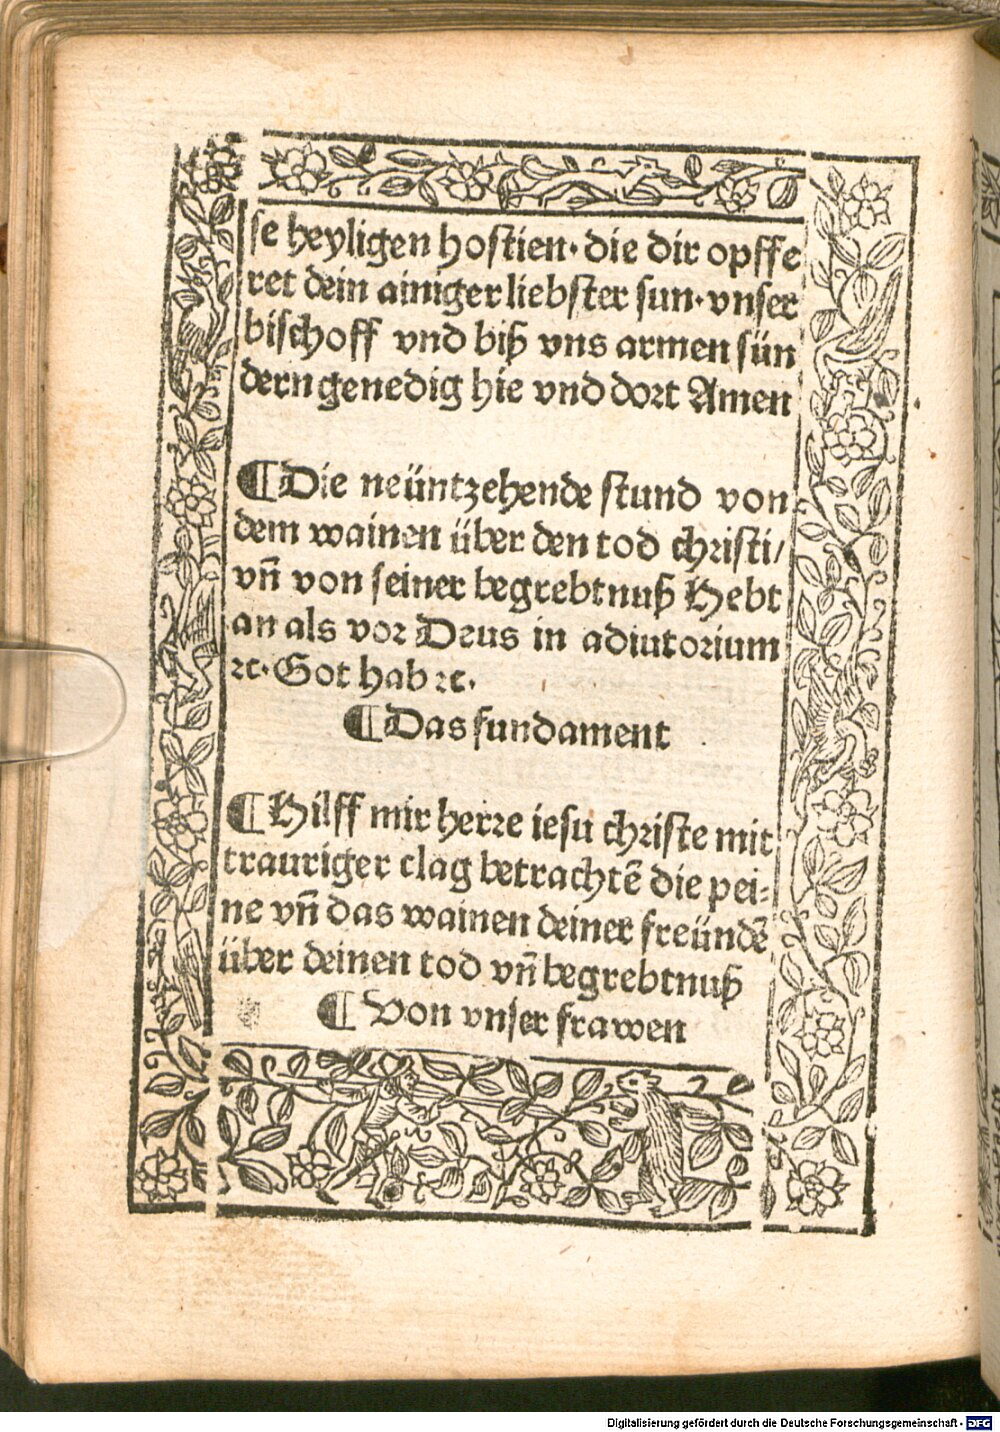 se heyligen hostien· die dir opffe
ret dein ainiger liebster sun· vnser
bischoff vnd biß vns armen sün
dern genedig hie vnd dort Amen
¶ Die neüntzehende stund von
dem wainen über den tod christi/
vn̄ von seiner begrebtnuß Hebt
an als vor Deus in adiutorium
ꝛc· Got hab ꝛc.
¶ Das fundament
¶ Hilff mir herre iesu christe mit
trauriger clag betrachtē die pei⸗
ne vn̄ das wainen deiner freündē
über deinen tod vn̄ begrebtnuß
¶ Von vnser frawen
Digitalisierung gefördert durch die Deutsche Forschungsgemeinschaft - DFG